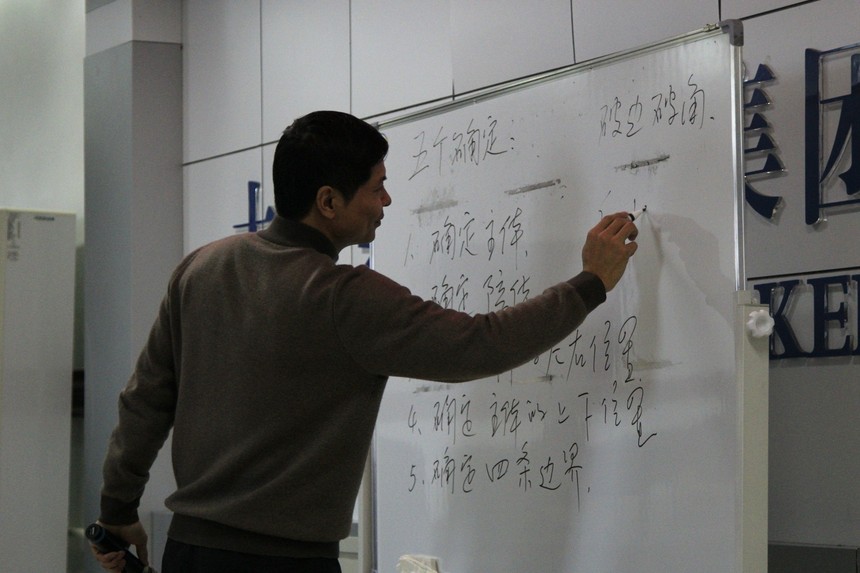 五个确定: 破边破角.
1. 确定主体.
确定 陪体
左右位置
4. 确定 主体的上下位置
5. 确定 四条边界.
美团
KE